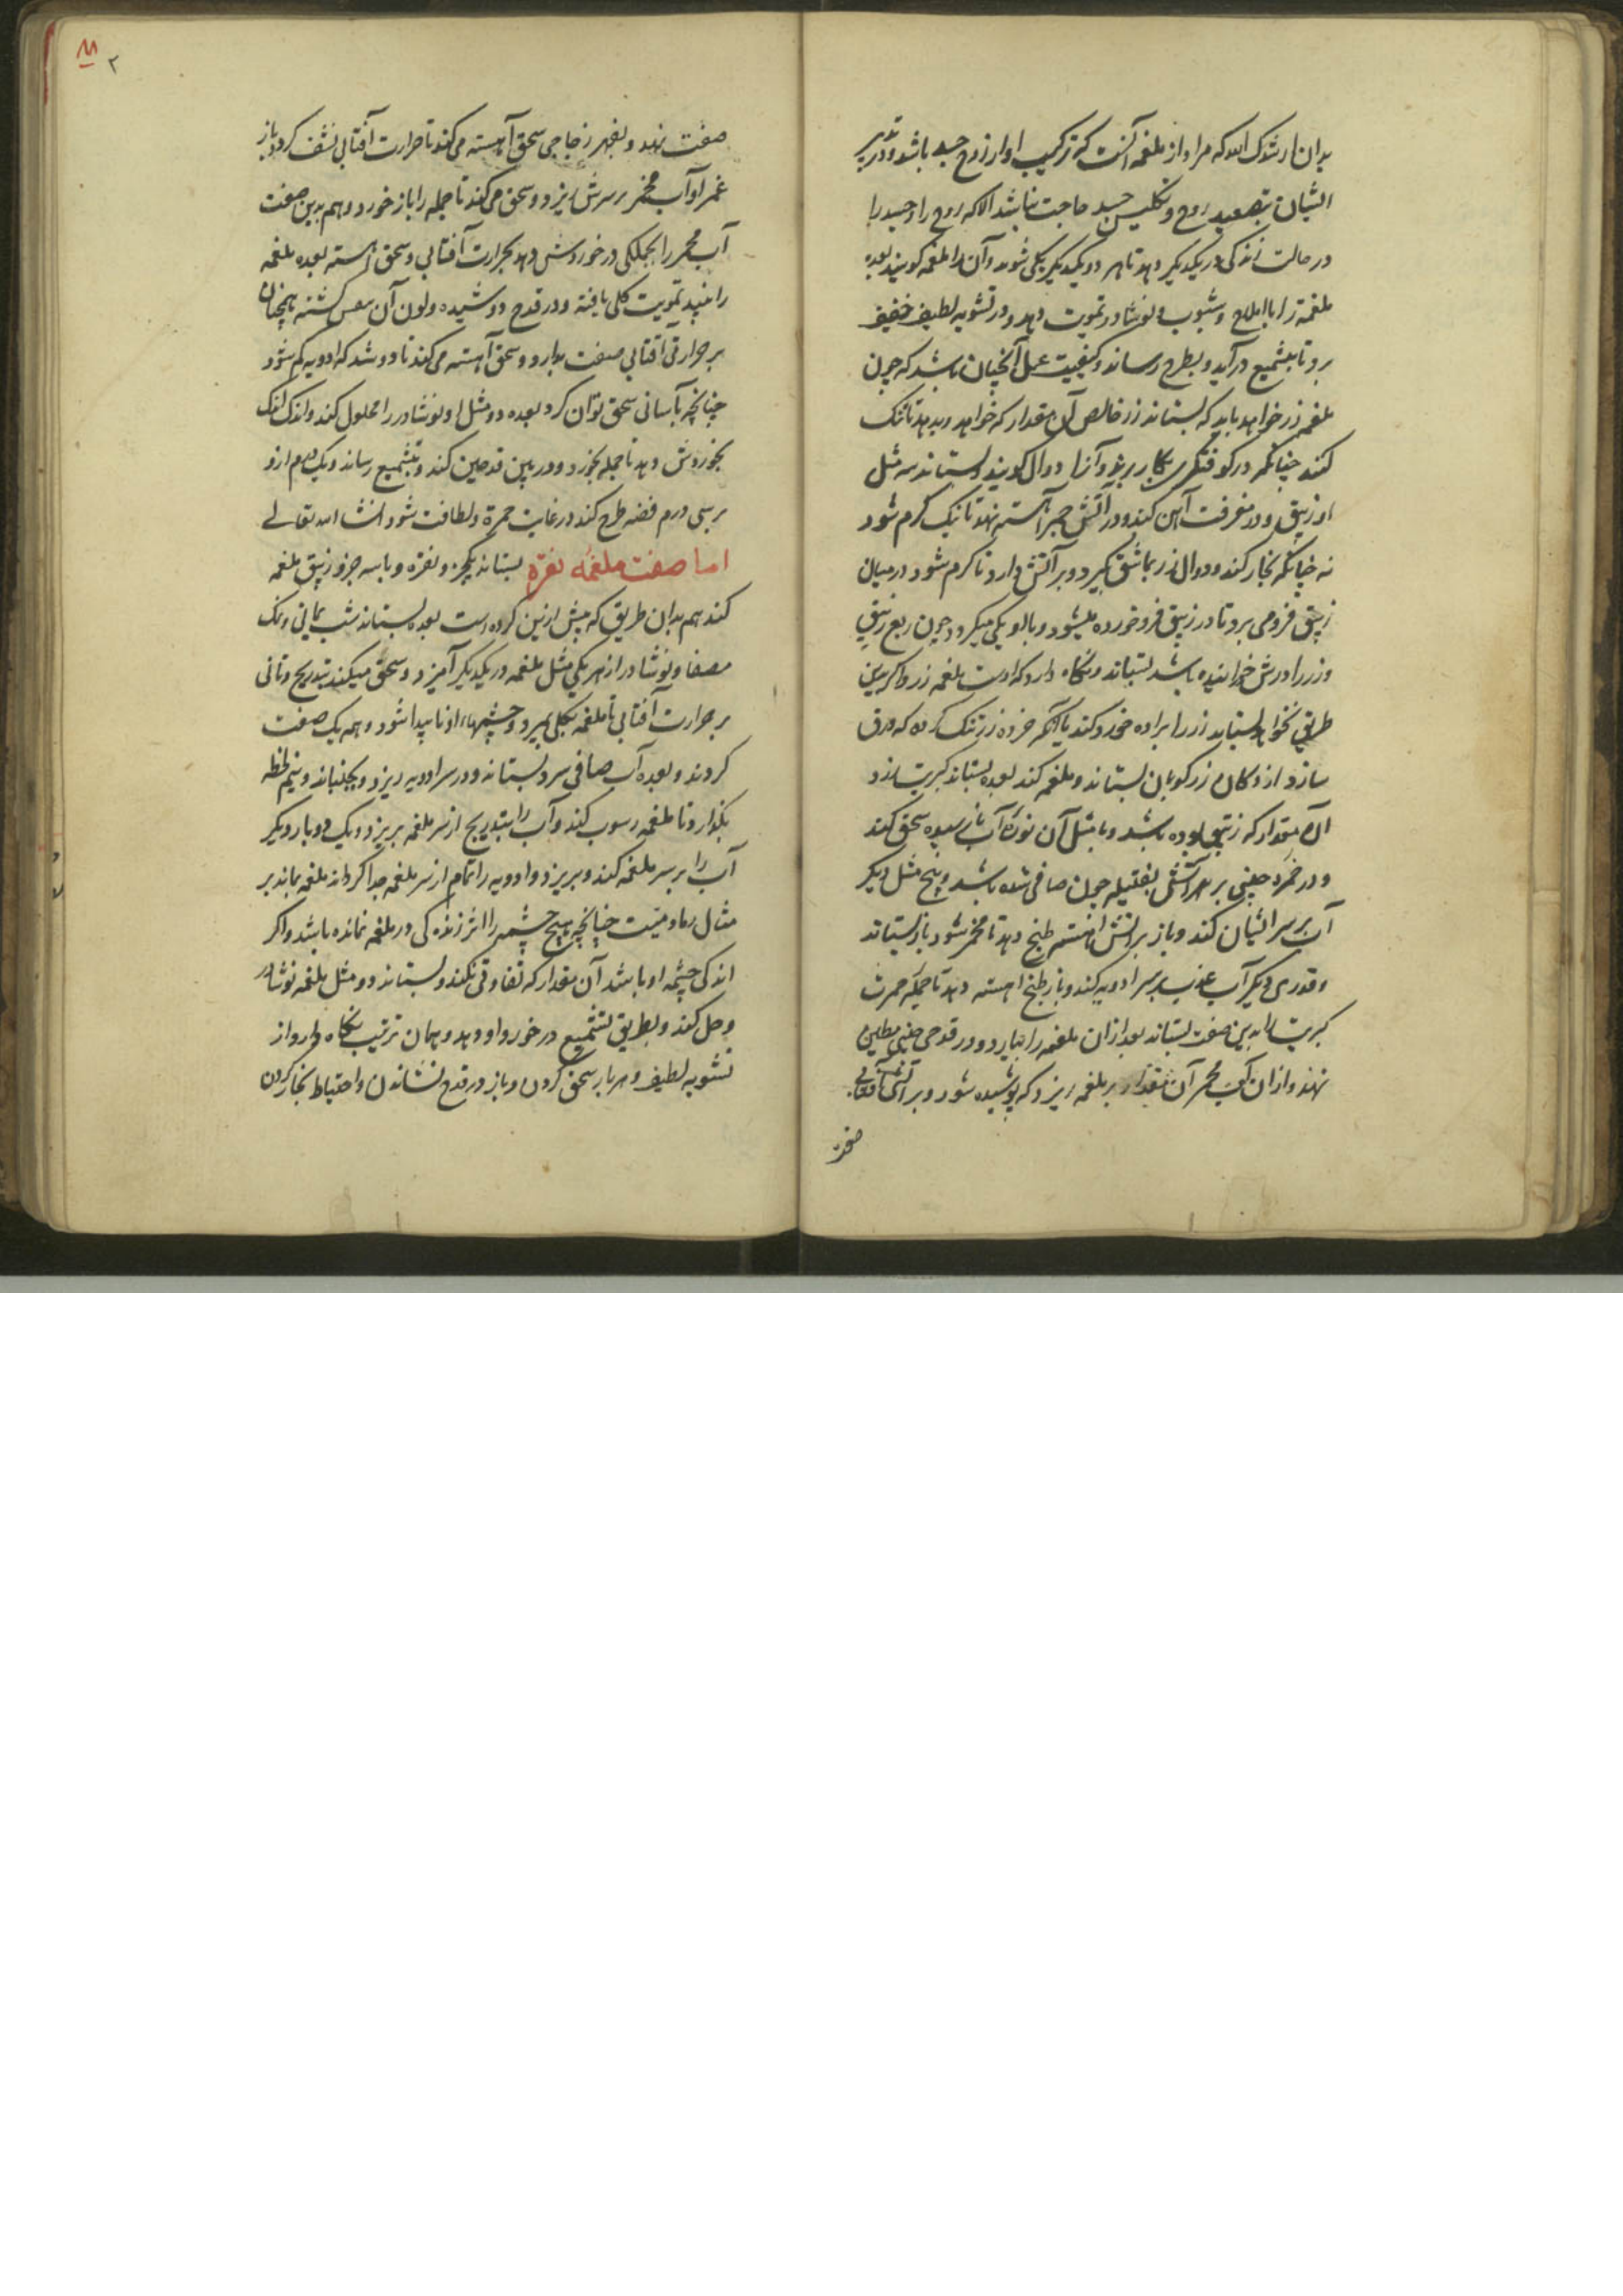 بدان ارشدک الله که مراد از ملغمه آنست که ترکیب او از روح جسد باشد و در تدبیر
ایشان بتصعید روح و تکلیس جسد حاجت نباشد الا که روح را و جسد را
در حالت زندگی در یکدیگر دهد تا هر دو یکدیگر یکی شوند و آن را ملغمه گویند بعده
ملغمه را با املاح و شبوب و نوشادر تمویت دهد و در تشویه لطیف خفیف
برد تا بتشمیع درآید و بطرح رساند و کیفیت عمل آنچنان باشد که چون
ملغمه زر خواهد باید که بستاند زر خالص آن مقدار که خواهد و بدهد تا تنک
کنند چنانکه در کوفتگری بکار برند و آنرا دوال گویند و بستاند سه مثل
او زیبق و در مغرفت آهن کند و در آتش جمر آهسته نهد تا نیک گرم شود
نه چنانکه بخار کند و دوال زر بماشق گیرد و بر آتش دارد تا گرم شود در میان
زیبق فرو می برد تا در زیبق فرو خورده میشود و با او یکی میگردد چون ربع زیبق
و زر را درش خورانیده باشد بستاند و نگاه دارد که اوست ملغمه زر و اگر بدین
طریق نخواهد بستاند زر را براده خورد کند یا آنکه خرده زر تنک کرده که ورق
سازد از دکان زرکوبان بستاند و ملغمه کند بعده بستاند کبریت زرد
آن مقدار که زیبق بوده باشد و با مثل آن نوره آب نارسیده سحق کند
و در خمره چینی بر سر آتش بفتیله چون صافی شده باشد و پنج مثل دیگر
آب بر سر ایشان کند و باز بر آتش آهسته طبخ دهد تا محمر شود باز بستاند
و قدری دیگر آب عذب بر سر ادویه کند و باز طبخ آهسته دهد تا جمله حمرت
کبریت را بدین صفت بستاند بعد از آن ملغمه را بیارد و در قدحی چینی مطلین
نهند و از آن آب محمر آن مقدار بر ملغمه ریزد که پوشیده شود و بر آتش آفتابی
صفت
۲
صفت نهد و بفهر زجاجی سحق آهسته می کند تا حرارت آفتابی نشف گردد باز
غمر او آب محمر بر سرش ریزد و سحق می کند تا جمله را باز خورد و هم بدین صفت
آب محمر را بجملگی در خوردش دهد بحرارت آفتابی و سحق آهسته بعده ملغمه
را بیند تمویت کلی یافته و در قدح دوشیده و لون آن گشته همچنان
بر حرارتی آفتابی صفت بدارد و سحق آهسته می کند تا دوشد که ادویه کم شود
چنانچه بآسانی سحق توان کرد بعده دو مثل او نوشادر را محلول کند و اندک اندک
بخوردش دهد تا جمله بخورد و در بین قدحین کند و بتشمیع رساند و یک درم ازو
بر سی درم فضه طرح کند در غایت حمرة و لطافت شود انشاء الله تعالی
اما صفت ملغمه نقره بستاند یکجزو نقره و با سه جزو زیبق ملغمه
کند هم بدان طریق که پیش ازین کرده است بعده بستاند شب یمانی و نمک
مصفا و نوشادر از هر یکی مثل ملغمه در یکدیگر آمیزد و سحق میکند بتدریج و تانی
بر حرارت آفتابی تا ملغمه بکلی بمیرد و چشمهاء او ناپیدا شود و همه یک صفت
گردند و بعده آب صافی سرد بستاند و در سر ادویه ریزد و بجنباند و نیم لحظه
بگذارد تا ملغمه رسوب کند و آب را بتدریج از سر ملغمه بریزد و یک دو بار دیگر
آب را بر سر ملغمه کند و بریزد و ادویه را تمام از سر ملغمه جدا گرداند ملغمه بماند بر
مثال رماد میت چنانچه هیچ چشمه را اثر زندگی در ملغمه نمانده باشد و اگر
اندکی چشمه او باشد آن مقدار که تفاوتی نکند و بستاند دو مثل ملغمه نوشادر
و حل کند و بطریق تشمیع در خورد او دهد و همان ترتیب نگاه دارد از
تشویه لطیف و هر بار سحق کردن و باز در قدح نشاندن و احتیاط بخار کردن